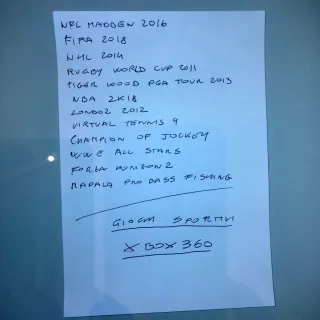 NFL MADDEN 2016
FIFA 2018
NHL 2014
RUGBY WORLD CUP 2011
TIGER WOOD PGA TOUR 2013
NBA 2K18
LONDOZ 2012
VIRTUAL TENNIS 4
CHAMPION OF JOCKEY
WWE ALL STARS
FORZA HORIZON 2
RAPALA PRO BASS FISHING
GIOCHI SPORTIVI
XBOX 360